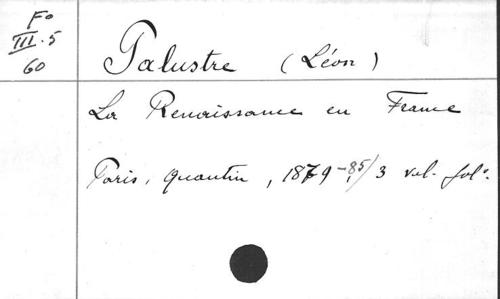 Fo
III. 5
60
Palustre (Léon)
La Renaissance en France
Paris, quantin, 1879-85, 3 vol. folo.